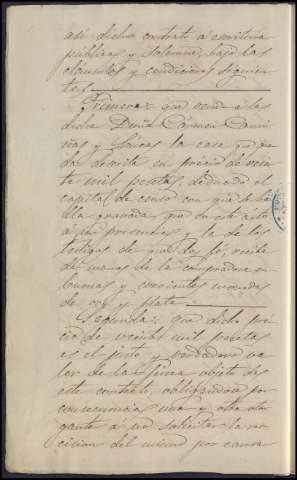 así dicho contrato á escritura
pública y solemne, bajo las
cláusulas y condiciones siguien-
tes.
Primera: que vende á las
dicha Doña Cármen
y la casa que que-
da descrita en precio de vein-
te mil pesetas, deducido el
capital de censo con que se ha-
lla gravada, que en este acto
á mi presencia y la de los
testigos de que doy fé, recibe
de manos de la compradora en
buenas y corrientes monedas
de oro y plata.
Segunda: que dicho pre-
cio de veinte mil pesetas
es el justo y verdadero va-
lor de la finca objeto de
este contrato, obligándose por
consecuencia una y otra otor-
gante á no solicitar la res-
cision del mismo por causa